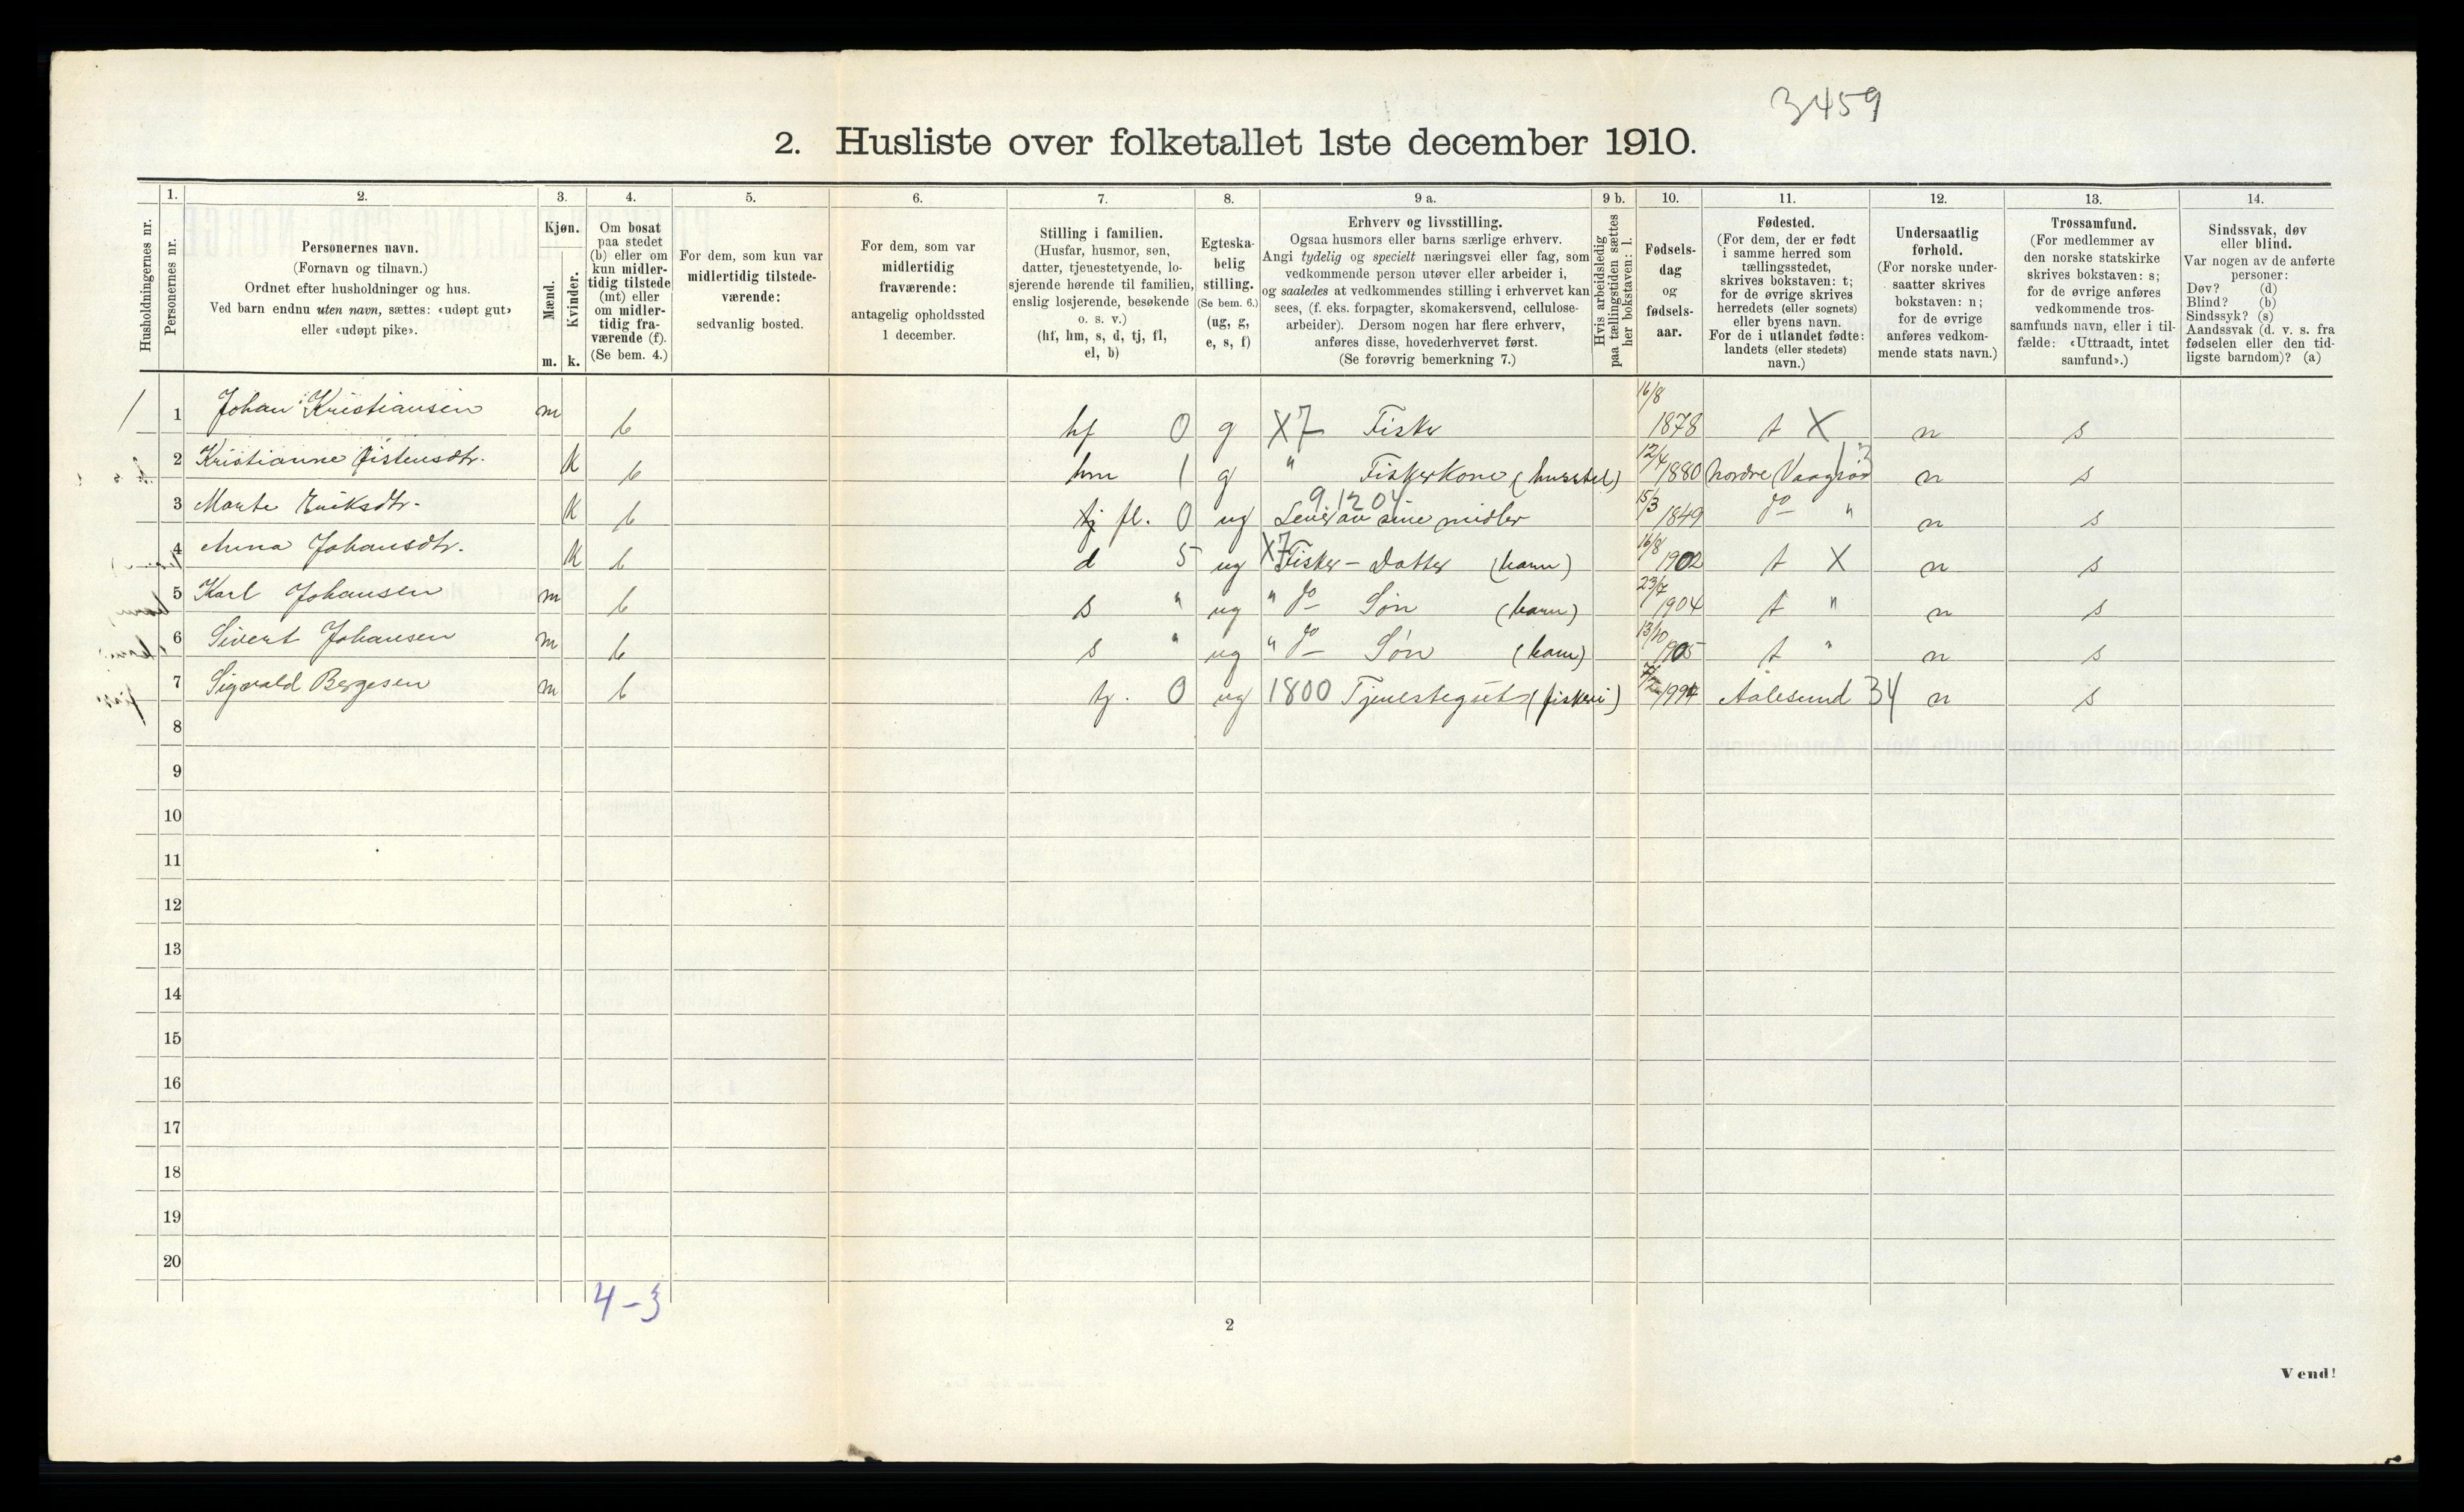 3459
2. Husliste over folketallet 1ste december 1910.
1. 2. 3. 4. 5. 6. 7. 8. 9 a. 9 b. 10. 11. 12. 13. 14.
Husholdningernes nr.
Personernes nr.
Personernes navn.
(Fornavn og tilnavn.)
Ordnet efter husholdninger og hus.
Ved barn endnu uten navn, sættes: «udøpt gut»
eller «udøpt pike».
Kjøn.
Mænd.
Kvinder.
m. k.
Om bosat
paa stedet
(b) eller om
kun midler-
tidig tilstede
(mt) eller
om midler-
tidig fra-
værende (f).
(Se bem. 4.)
For dem, som kun var
midlertidig tilstede-
værende:
sedvanlig bosted.
For dem, som var
midlertidig
fraværende:
antagelig opholdssted
1 december.
Stilling i familien.
(Husfar, husmor, søn,
datter, tjenestetyende, lo-
sjerende hørende til familien,
enslig losjerende, besøkende
o. s. v.)
(hf, hm, s, d, tj, fl,
el, b)
Egteska-
belig
stilling.
(Se bem. 6.)
(ug, g,
e, s, f)
Erhverv og livsstilling.
Ogsaa husmors eller barns særlige erhverv.
Angi tydelig og specielt næringsvei eller fag, som
vedkommende person utøver eller arbeider i,
og saaledes at vedkommendes stilling i erhvervet kan
sees, (f. eks. forpagter, skomakersvend, cellulose-
arbeider). Dersom nogen har flere erhverv,
anføres disse, hovederhvervet først.
(Se forøvrig bemerkning 7.)
Hvis arbeidsledig
paa tællingstiden sættes
her bokstaven: l.
Fødsels-
dag
og
fødsels-
aar.
Fødested.
(For dem, der er født
i samme herred som
tællingsstedet,
skrives bokstaven: t;
for de øvrige skrives
herredets (eller sognets)
eller byens navn.
For de i utlandet fødte:
landets (eller stedets)
navn.)
Undersaatlig
forhold.
(For norske under-
saatter skrives
bokstaven: n;
for de øvrige
anføres vedkom-
mende stats navn.)
Trossamfund.
(For medlemmer av
den norske statskirke
skrives bokstaven: s;
for de øvrige anføres
vedkommende tros-
samfunds navn, eller i til-
fælde: «Uttraadt, intet
samfund».)
Sindssvak, døv
eller blind.
Var nogen av de anførte
personer:
Døv? (d)
Blind? (b)
Sindssyk? (s)
Aandssvak (d. v. s. fra
fødselen eller den tid-
ligste barndom)? (a)
1 Johan Kristiansen m b hf 0 g X7 Fisker 16/8 1878 t X n s
2 Kristianne Østensdtr. K b hm 1 g " Fiskerkone (husstel) 12/4 1880 Nordre Vaagsø n s
3 Marte Eriksdtr. K b tj fl. 0 ug 91204 Lever av sine midler 15/3 1849 do " n s
4 Anna Johansdtr. K b d 5 ug X7 Fisker - Datter (barn) 16/8 1902 t X n s
5 Karl Johansen m b s " ug " do Søn (barn) 23/7 1904 t " n s
6 Sivert Johansen m b s " ug " do Søn (barn) 13/10 1905 t " n s
7 Sigvald Bergesen m b tj. 0 ug 1800 Tjenestegut (fiskeri) Aalesund 34 n s
8
9
10
11
12
13
14
15
16
17
18
19
20
4-3
2
Vend!